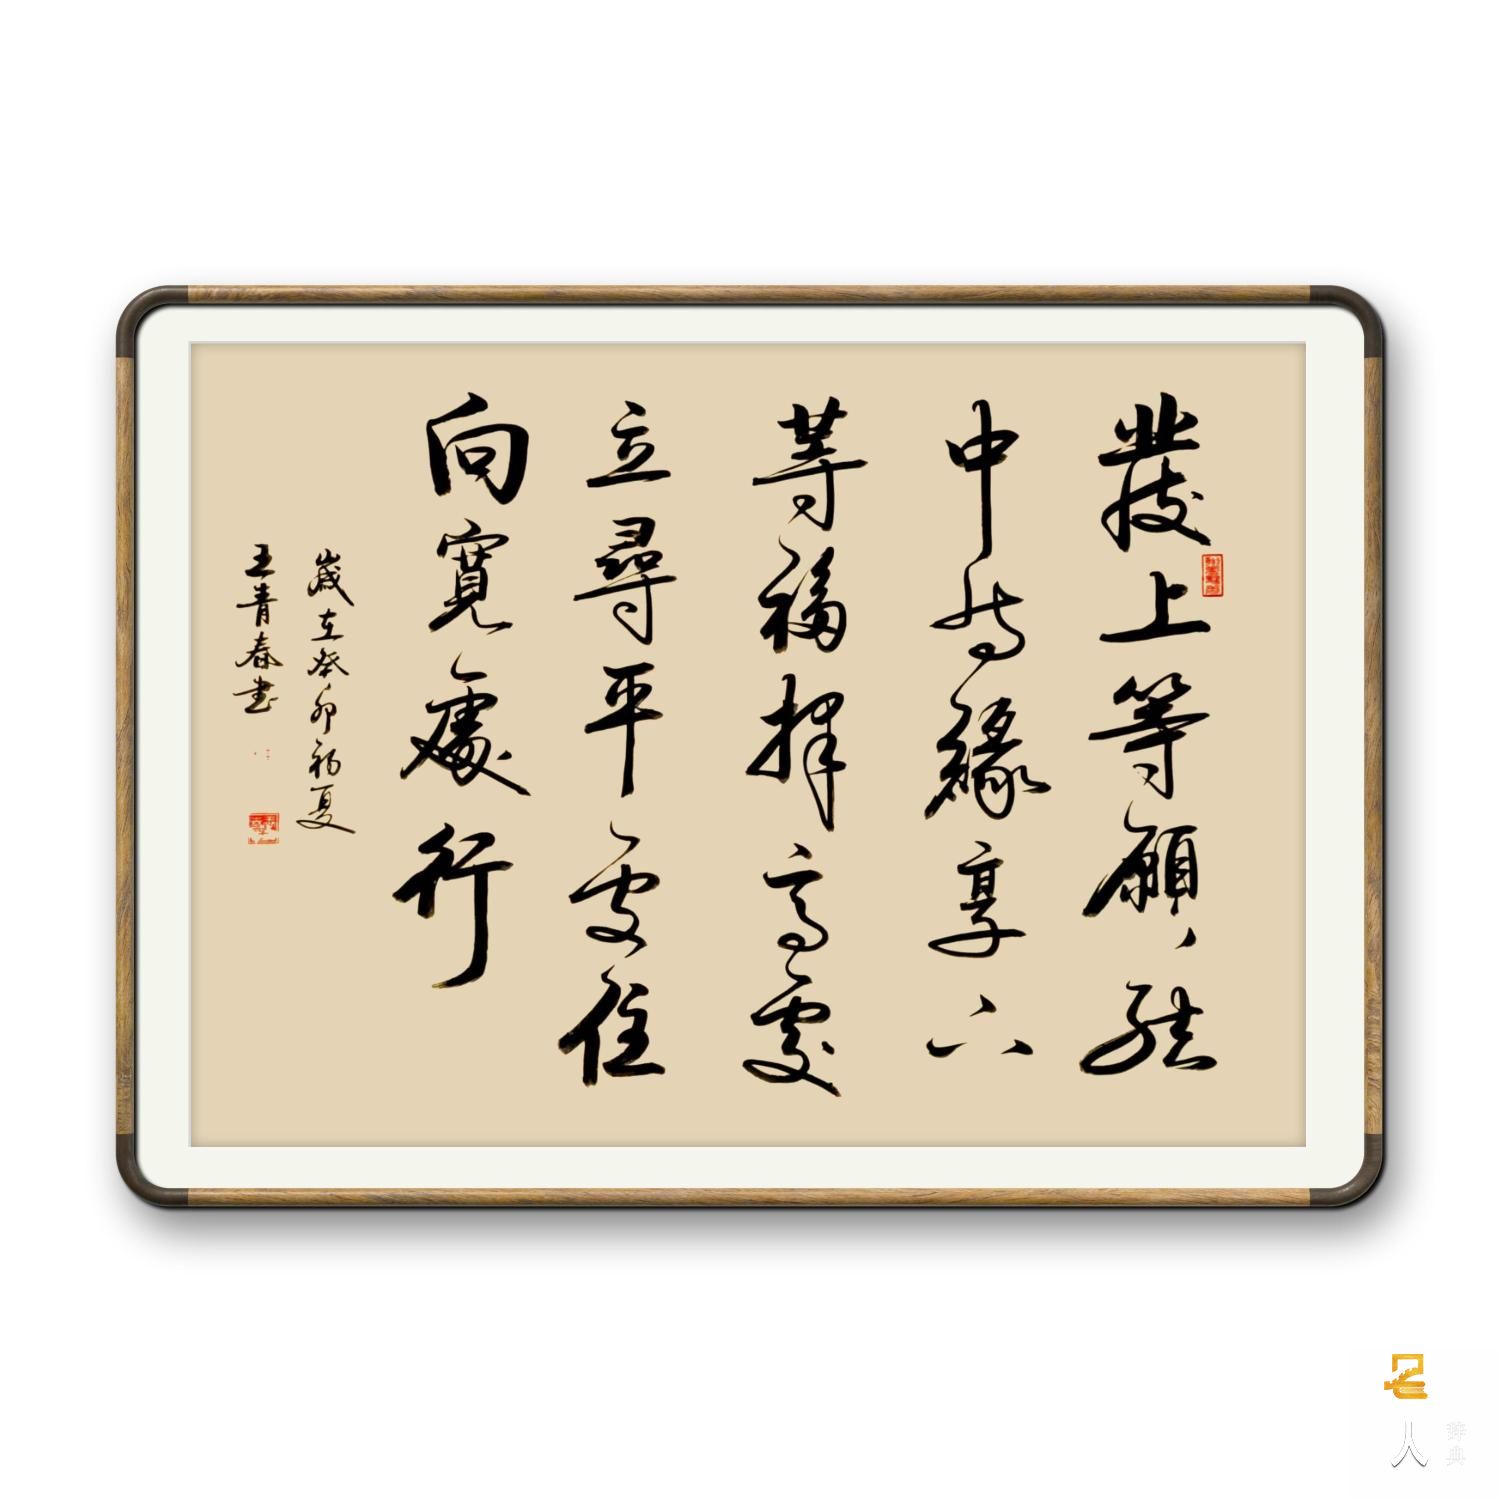 發上等願、結
中等緣享下
等福擇高處
立尋平處住
向寬處行
歲在癸卯初夏
王青春書
名人
辞典